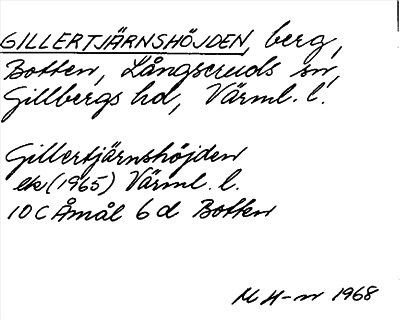 GILLERTJÄRNSHÖJDEN, berg,
Botten, Långseruds sn,
Gillbergs hd, Värml. l.
Gillertjärnshöjden
ek (1965) Värml. l.
10 C Åmål 6 d Botten
M H-n 1968